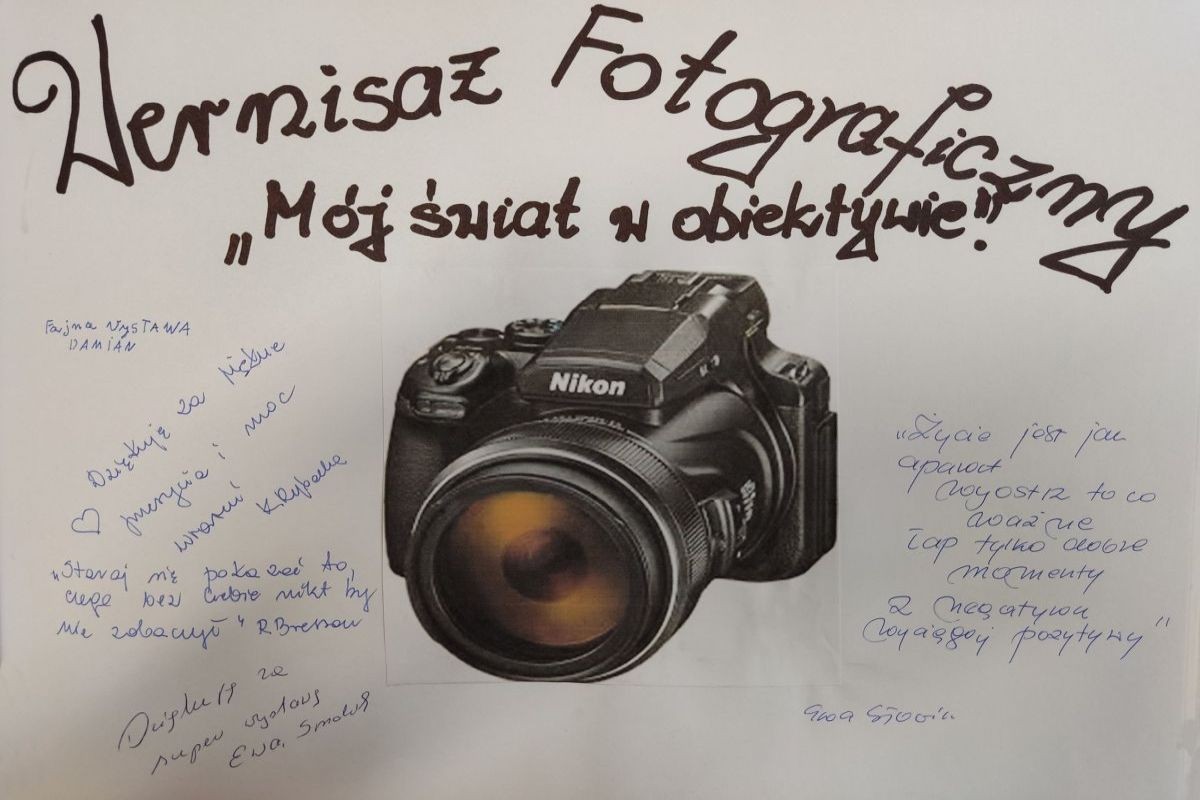 Wernisaż Fotograficzny
„Mój świat w obiektywie!"
Fajna WYSTAWA
DAMIAN
Dziękuję za piękne
przeżycia i moc
wrażeń
Nikon
„Staraj się pokazać to,
czego bez Ciebie nikt by
nie zobaczył" R. Bresson
Dziękuję za
super wystawę
Ewa
„Życie jest jak
aparat
wyostrz to co
ważne
łap tylko dobre
momenty
z negatywu
wyciągaj pozytywy"